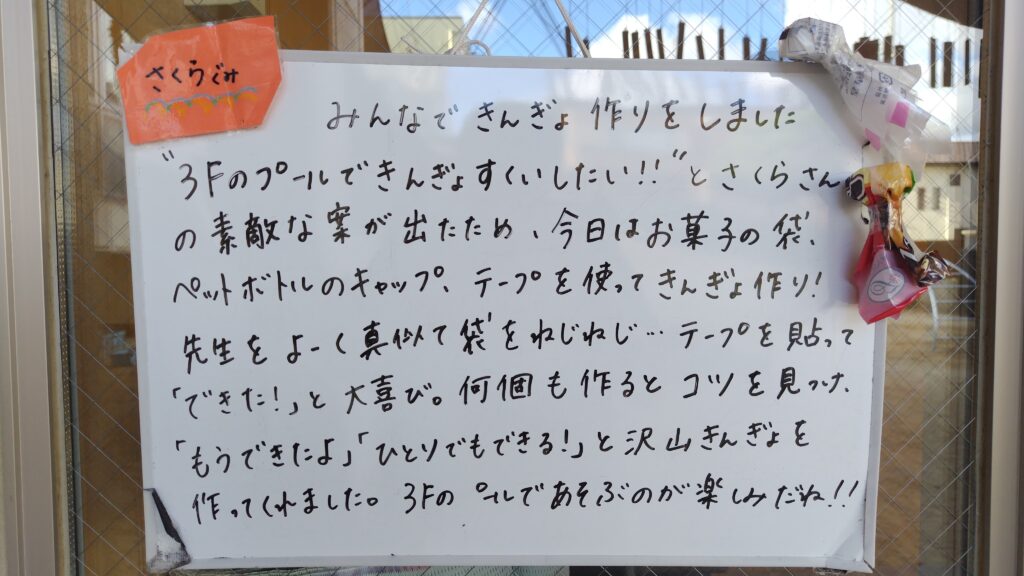 さくらぐみ
みんなできんぎょ作りをしました
"3Fのプールできんぎょすくいしたい!!"とさくらさん
の素敵な案が出たため、今日はお菓子の袋、
ペットボトルのキャップ、テープを使ってきんぎょ作り!
先生をよーく真似て袋をねじねじ…テープを貼って
「できた!」と大喜び。何個も作るとコツを見つけ、
「もうできたよ」「ひとりでもできる!」と沢山きんぎょを
作ってくれました。3Fのプールであそぶのが楽しみだね!!